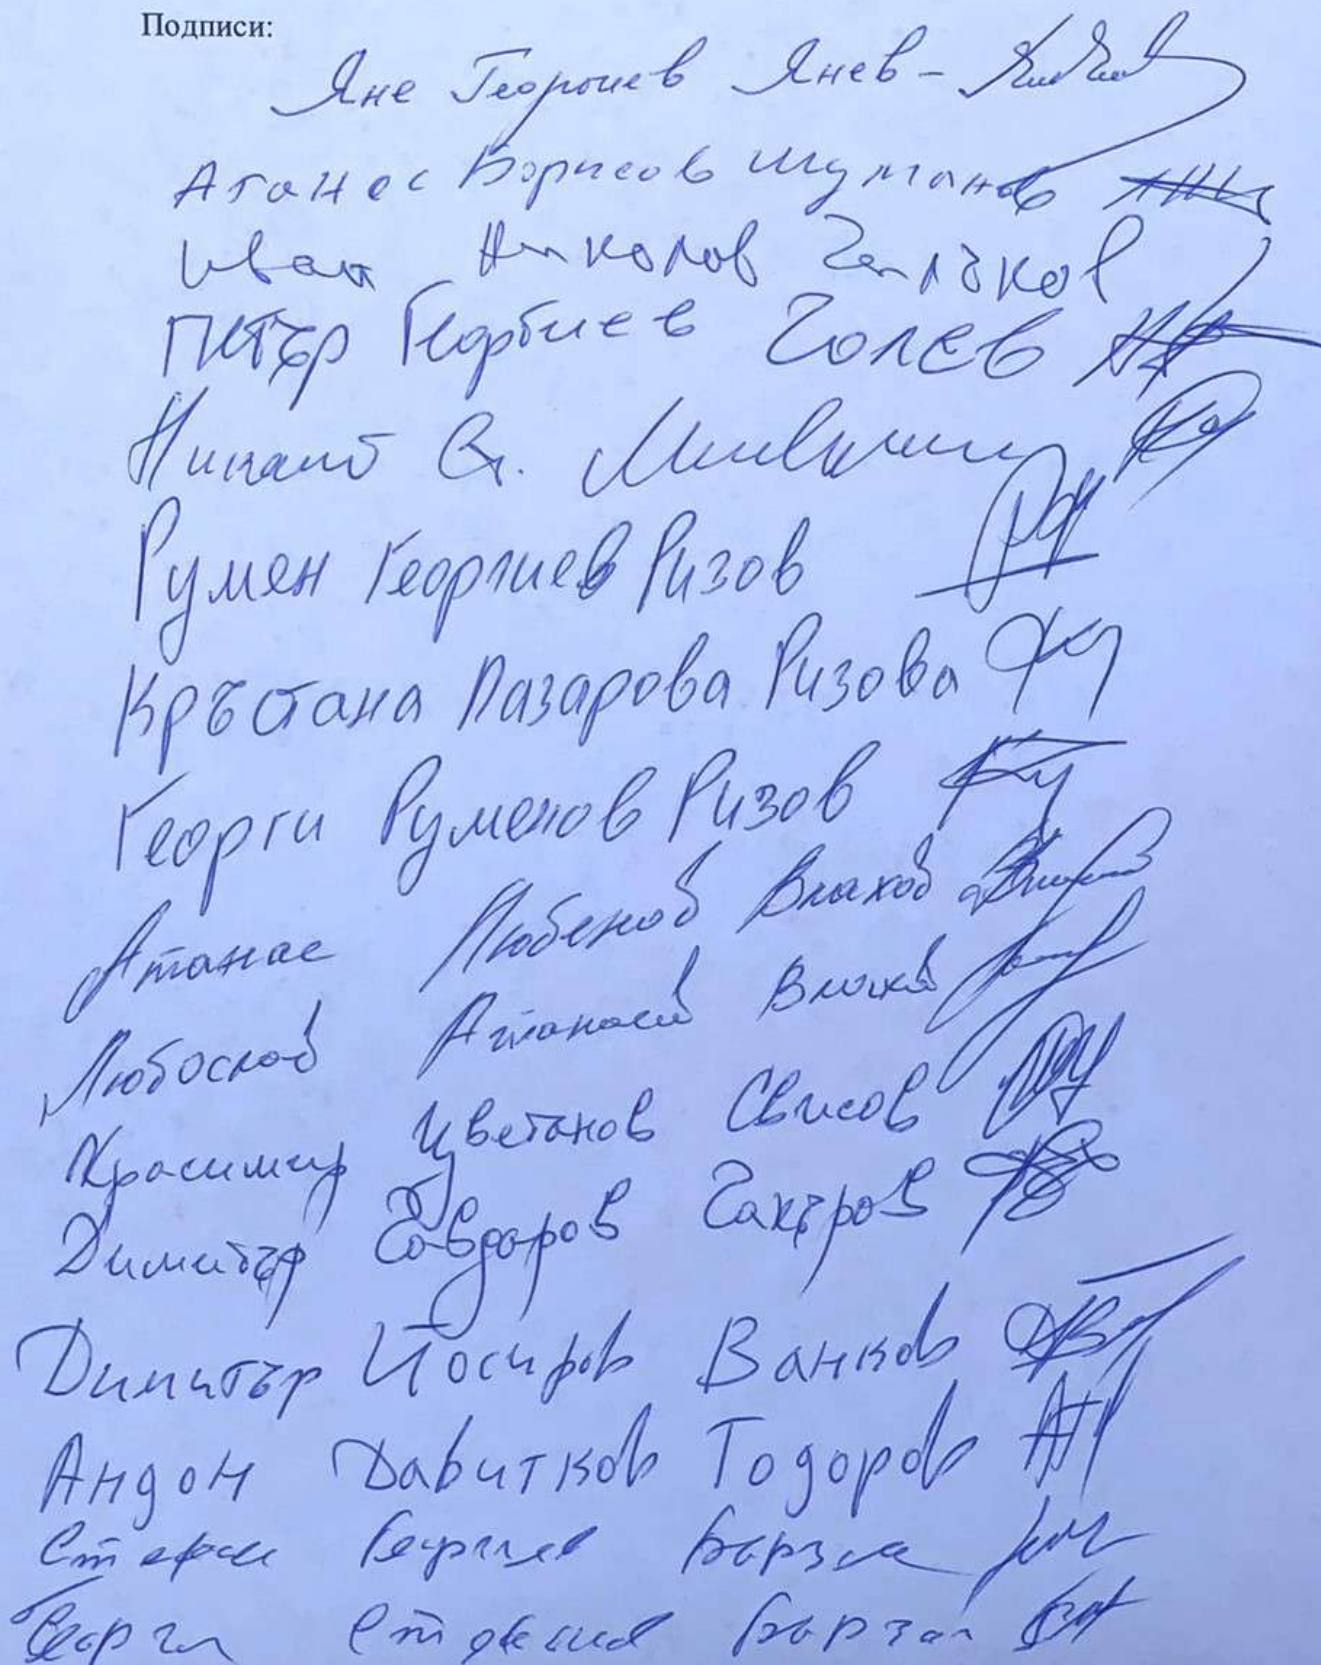 Подписи:
Яне Георгиев Янев -
Атанас Борисов Шуманов
Иван Николов
Петър Георгиев Голев
Ст.
Румен Георгиев Ризов
Кръстана Лазарова Ризова
Георги Руменов Ризов
Атанас Любенов Влахов
Любослав Атанасов Влахов
Красимир Цветанов Свисов
Димитър Гакъров
Димитър Йосифов Ванков
Андон Давитков Тодоров
Стефан Георгиев
Георги Стефанов